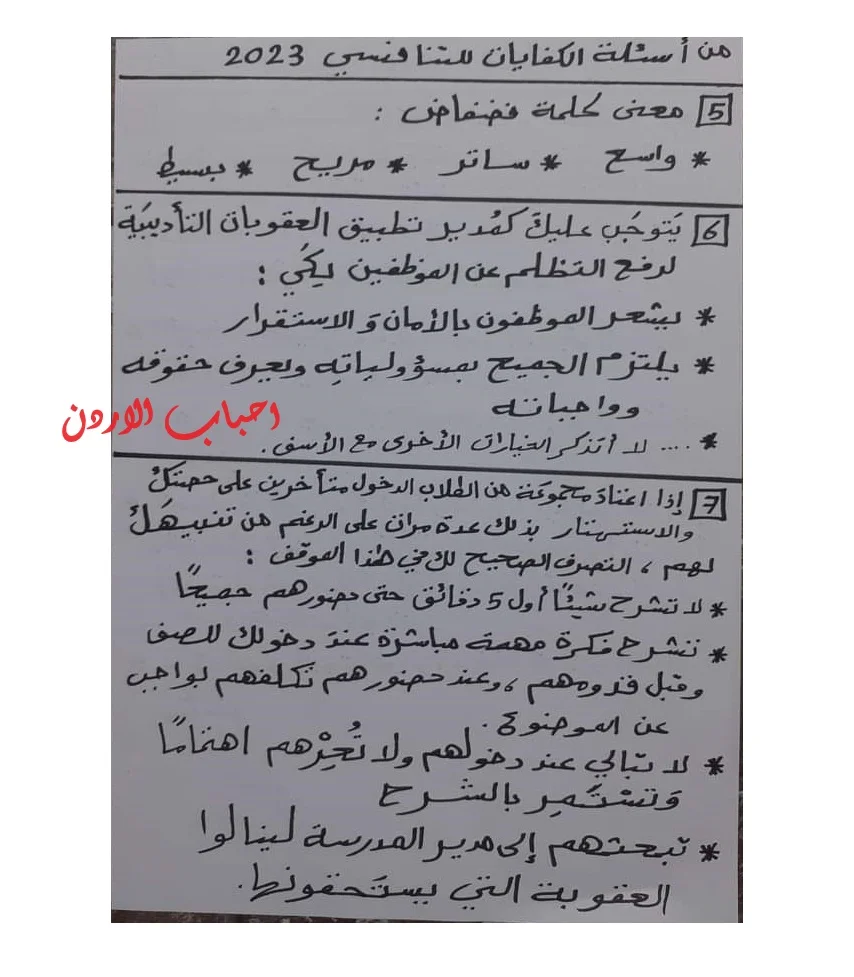 من أسئلة الكفايات للتنافسي 2023
5 معنى كلمة فضفاض :
* واسع * ساتر * مريح * بسيط
6 يَتوجَب عليكَ كمُدير تطبيق العقوبات التأديبيَة
لرفع التظلم عن الموظفين لِكَي :
* يشعر الموظفون بالأمان وَالاستقرار
* يلتزم الجميع بمسؤولياتِه ويعرف حقوقه
وواجباته
احباب الاردن
* .... لا أتذكر الخيارات الأخرى مع الأسف .
7 إذا اعتادَ مجموعَة من الطلاب الدخول متأخرين على حصتكْ
والاستهتار بذلك عدة مرات على الرغم من تنبيهَكْ
لهم ، التصرف الصحيح لك في هذا الموقف :
* لا تشرح شيئًا أول 5 دقائق حتى حضورهم جميعًا
* تشرح فكرة مهمة مباشرة عند دخولك للصف
وقبل قدومهم ، وعند حضورهم تكلفهم بواجب
عن الموضوع .
* لا تبالي عند دخولهم ولا تُعِرْهم اهتمامًا
وَتسْتَمِر بالشرح
* تبعثهم إلى مدير المدرسة لينالوا
العقوبة التي يستَحقونها .